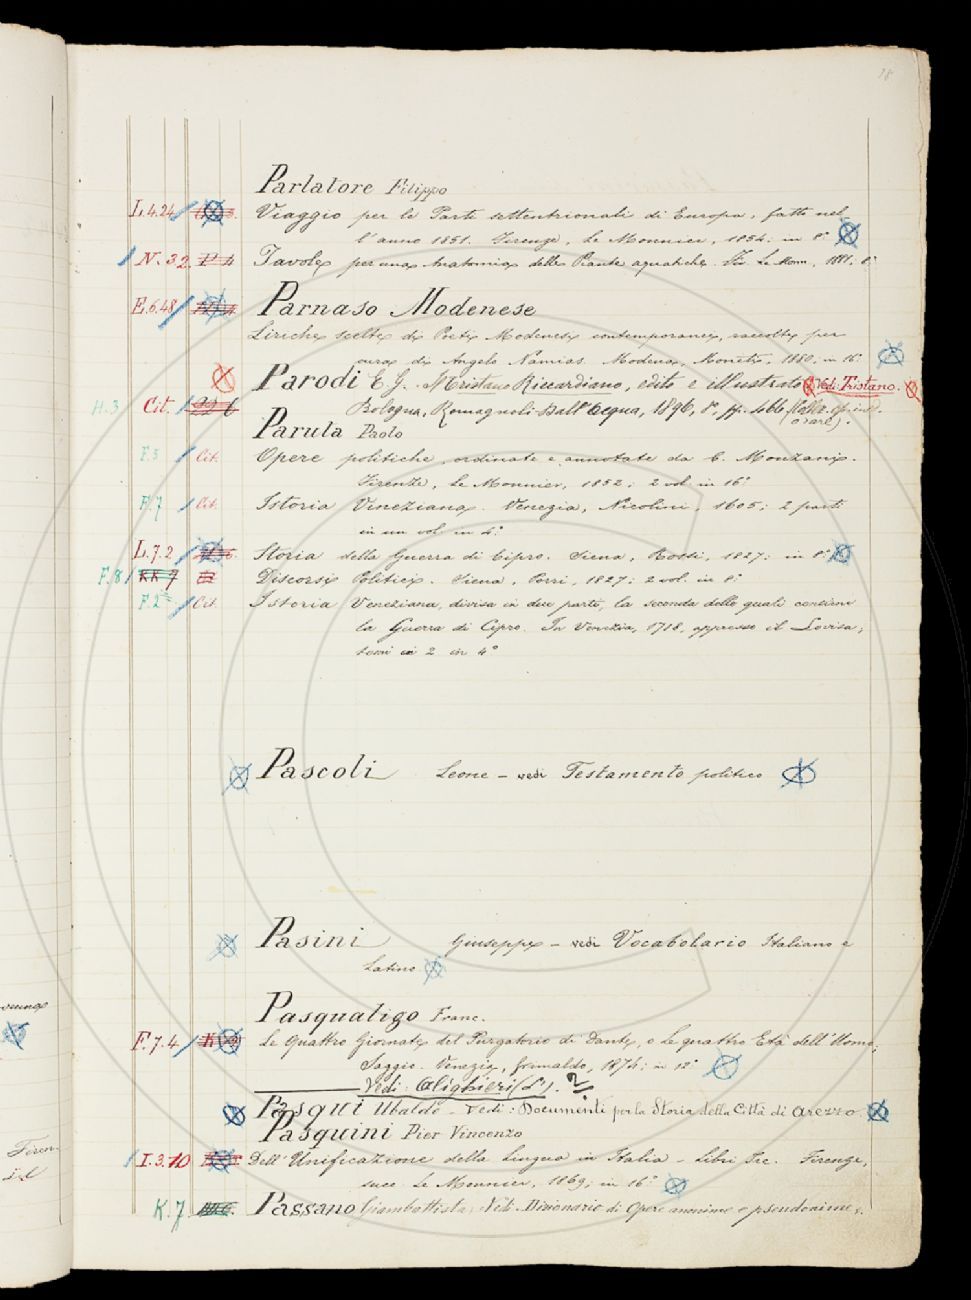 78
Parlatore Filippo
L.4.24 Viaggio per le Parti settentrionali di Europa, fatto nel-
l'anno 1851. Firenze, Le Monnier, 1854; in 8°
N.32. Tavole per una Anatomia delle Piante aquatiche. Fir. Le Monn. 1881, 8°
E.6.48 Parnaso Modenese
Liriche scelte di Poeti Modenesi contemporanei, raccolte per
cura di Angelo Namias. Modena, Moneti, 1880; in 16°
Parodi E. G. Il Tristano Riccardiano, edito e illustrato Vedi Tristano.
H.3 Cit. Bologna, Romagnoli-Dall'Acqua, 1896, 8°, pp. 466
Paruta Paolo
F.5 Cit. Opere politiche, ordinate e annotate da C. Monzani.
Firenze, Le Monnier, 1852; 2 vol. in 16°
F.7 Cit. Istoria Vineziana. Venezia, Nicolini, 1605; 2 parti
in un vol. in 4°
L.7.2 Storia della Guerra di Cipro. Siena, Rossi, 1827; in 8°
F.8 KK 7 Discorsi Politici. Siena, Porri, 1827; 2 vol. in 8°
F.2 Cit. Istoria Veneziana, divisa in due parti, la seconda delle quali contiene
la Guerra di Cipro. In Venezia, 1718, appresso il Lovisa;
tomi 2 in 4°
Pascoli Leone – vedi Testamento politico
Pasini Giuseppe – vedi Vocabolario Italiano e
Latino
Pasqualigo Franc.
F.7.4 Le Quattro Giornate del Purgatorio di Dante, o le quattro Età dell'Uomo;
Saggio. Venezia, Grimaldo, 1874; in 12°
Vedi Alighieri (D.). 2
Pasqui Ubaldo – Vedi: Documenti per la Storia della Città di Arezzo
Pasquini Pier Vincenzo
I.3.10 Dell'Unificazione della Lingua in Italia – Libri Tre. Firenze,
succ. Le Monnier, 1869; in 16°
K.7 Passano Giambattista; Vedi Dizionario di Opere anonime e pseudonime.